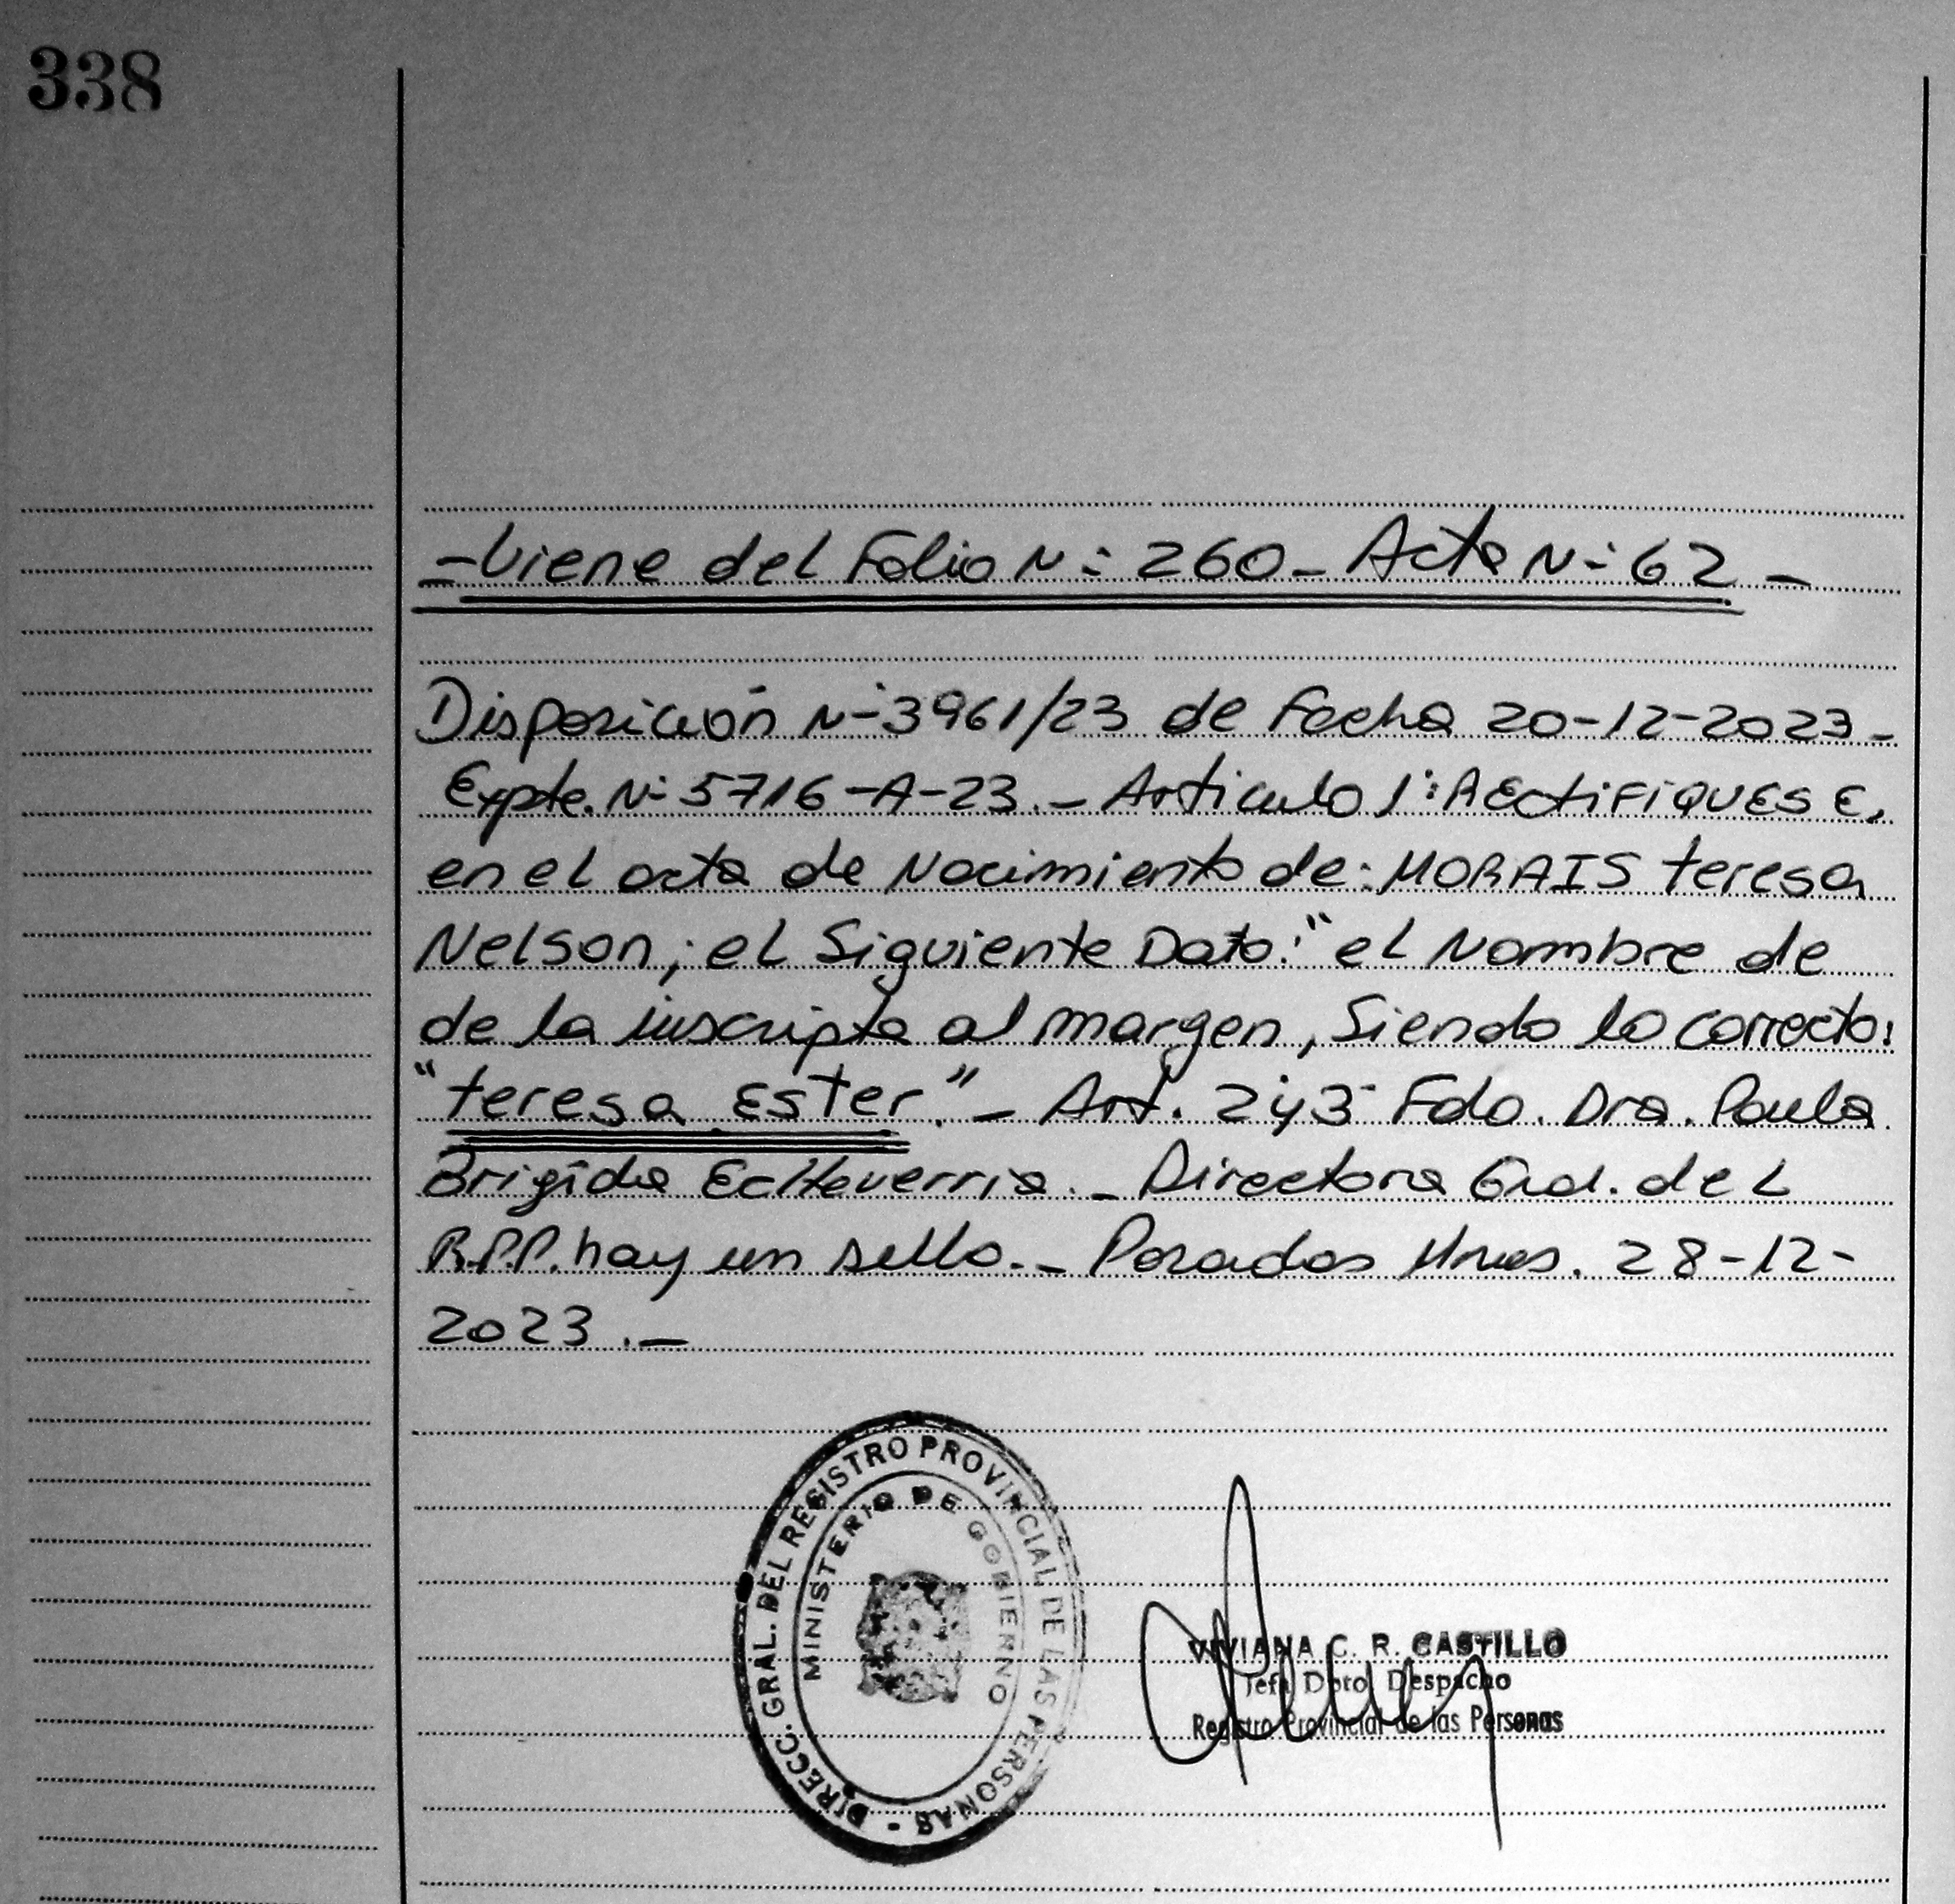 338
-Viene del Folio N-: 260-Acta N-: 62-
Disposición N-:3961/23 de Fecha 20-12-2023-
Expte. N-: 5716-A-23.- Articulo 1°: RECtiFiQUESE,
en el acta de Nacimiento de: MORAIS teresa
Nelson; el Siguiente Dato: "el Nombre de
de la inscripta al margen, Siendo lo correcto:
"teresa Ester".- Art. 2°y3° Fdo. Dra. Paula
Brigida EcHeverria.- Directora Gral. del
R.P.P. hay un sello.- Posadas Mnes. 28-12-
2023.-
DIRECC. GRAL. DEL REGISTRO PROVINCIAL DE LAS PERSONAS -
MINISTERIO DE GOBIERNO
VIVIANA C. R. CASTILLO
Jefa Dpto. Despacho
Registro Provincial de las Personas